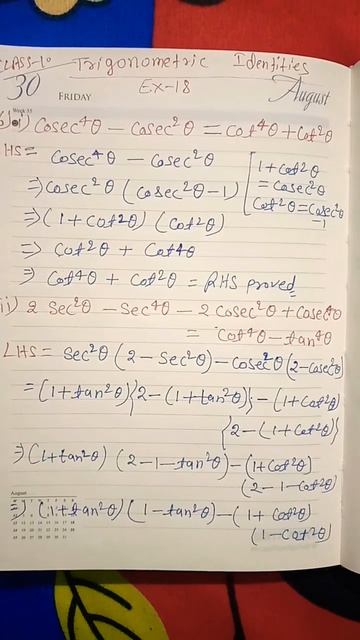 CLASS-10 Trigonometric Identities
30 FRIDAY EX-18 August
Week 35
i) Cosec⁴θ − Cosec²θ = Cot⁴θ + Cot²θ
HS = Cosec⁴θ − Cosec²θ
⇒ Cosec²θ (Cosec²θ − 1)
⇒ (1 + Cot²θ) (Cot²θ)
⇒ Cot²θ + Cot⁴θ
⇒ Cot⁴θ + Cot²θ = RHS proved
1 + Cot²θ
= Cosec²θ
Cot²θ = Cosec²θ
−1
ii) 2 Sec²θ − Sec⁴θ − 2 Cosec²θ + Cosec⁴θ
= Cot⁴θ − tan⁴θ
LHS = Sec²θ (2 − Sec²θ) − Cosec²θ (2 − Cosec²θ)
= (1 + tan²θ) {2 − (1 + tan²θ)} − (1 + Cot²θ)
{2 − (1 + Cot²θ)}
⇒ (1 + tan²θ) (2 − 1 − tan²θ) − (1 + Cot²θ)
(2 − 1 − Cot²θ)
August
⇒ (1 + tan²θ) (1 − tan²θ) − (1 + Cot²θ)
(1 − Cot²θ)